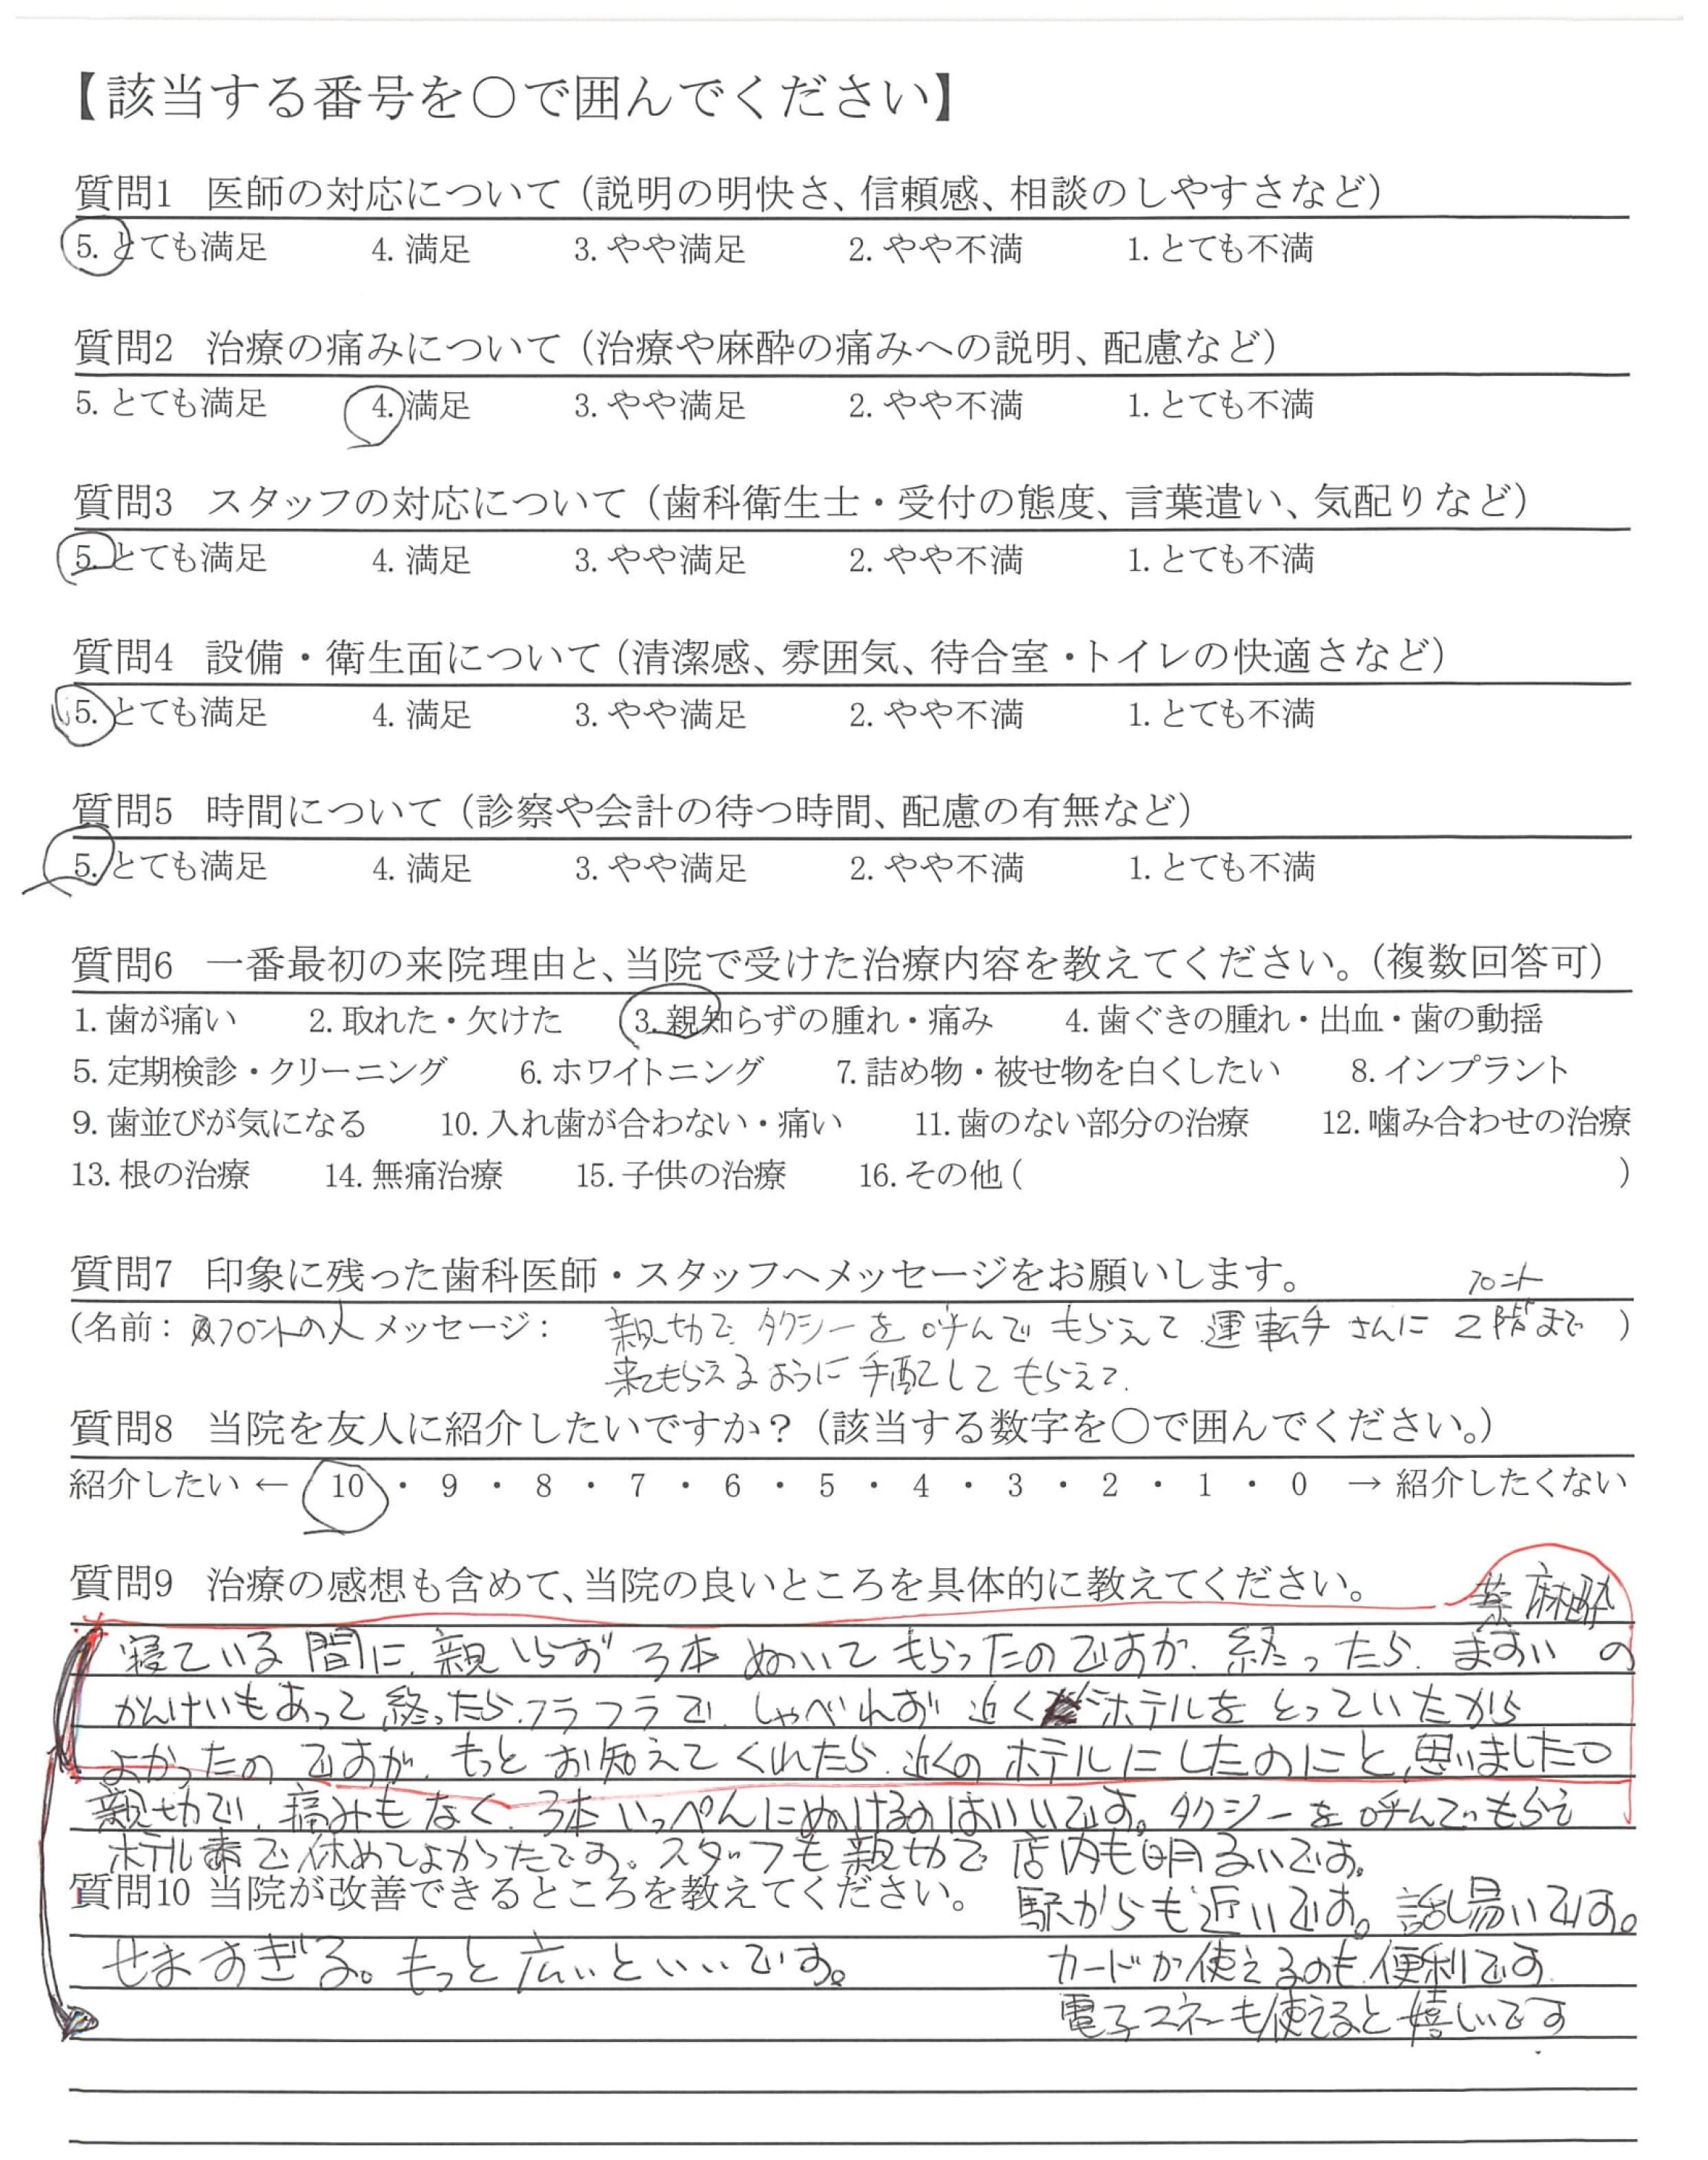 【該当する番号を○で囲んでください】
質問1 医師の対応について（説明の明快さ、信頼感、相談のしやすさなど）
5. とても満足 4. 満足 3. やや満足 2. やや不満 1. とても不満
質問2 治療の痛みについて（治療や麻酔の痛みへの説明、配慮など）
5. とても満足 4. 満足 3. やや満足 2. やや不満 1. とても不満
質問3 スタッフの対応について（歯科衛生士・受付の態度、言葉遣い、気配りなど）
5. とても満足 4. 満足 3. やや満足 2. やや不満 1. とても不満
質問4 設備・衛生面について（清潔感、雰囲気、待合室・トイレの快適さなど）
5. とても満足 4. 満足 3. やや満足 2. やや不満 1. とても不満
質問5 時間について（診察や会計の待つ時間、配慮の有無など）
5. とても満足 4. 満足 3. やや満足 2. やや不満 1. とても不満
質問6 一番最初の来院理由と、当院で受けた治療内容を教えてください。（複数回答可）
1. 歯が痛い 2. 取れた・欠けた 3. 親知らずの腫れ・痛み 4. 歯ぐきの腫れ・出血・歯の動揺
5. 定期検診・クリーニング 6. ホワイトニング 7. 詰め物・被せ物を白くしたい 8. インプラント
9. 歯並びが気になる 10. 入れ歯が合わない・痛い 11. 歯のない部分の治療 12. 噛み合わせの治療
13. 根の治療 14. 無痛治療 15. 子供の治療 16. その他（ ）
質問7 印象に残った歯科医師・スタッフへメッセージをお願いします。
フロント
（名前：フロントの人 メッセージ： 親切で タクシーを呼んでもらえて 運転手さんに 2階まで ）
来てもらえるように手配してもらえて.
質問8 当院を友人に紹介したいですか？（該当する数字を○で囲んでください。）
紹介したい ← 10 ・ 9 ・ 8 ・ 7 ・ 6 ・ 5 ・ 4 ・ 3 ・ 2 ・ 1 ・ 0 → 紹介したくない
質問9 治療の感想も含めて、当院の良いところを具体的に教えてください。
麻酔
寝ている間に、親しらず 3本 ぬいてもらったのですが、終ったら、ますいの
かんけいもあって 終ったら、フラフラで、しゃべれず 近くホテルをとっていたから
よかったのですが、もっとお知えてくれたら、近くのホテルにしたのにと、思いました○
親切で、痛みもなく、3本いっぺんにぬけるのはいいです。タクシーを呼んでもらえ
ホテルで休めてよかったです。スタッフも親切で 店内も明るいです。
質問10 当院が改善できるところを教えてください。
駅からも近いです。話し易いです。
せますぎる。もっと広いといいです。
カードが使えるのも、便利です
電子マネーも使えると嬉しいです